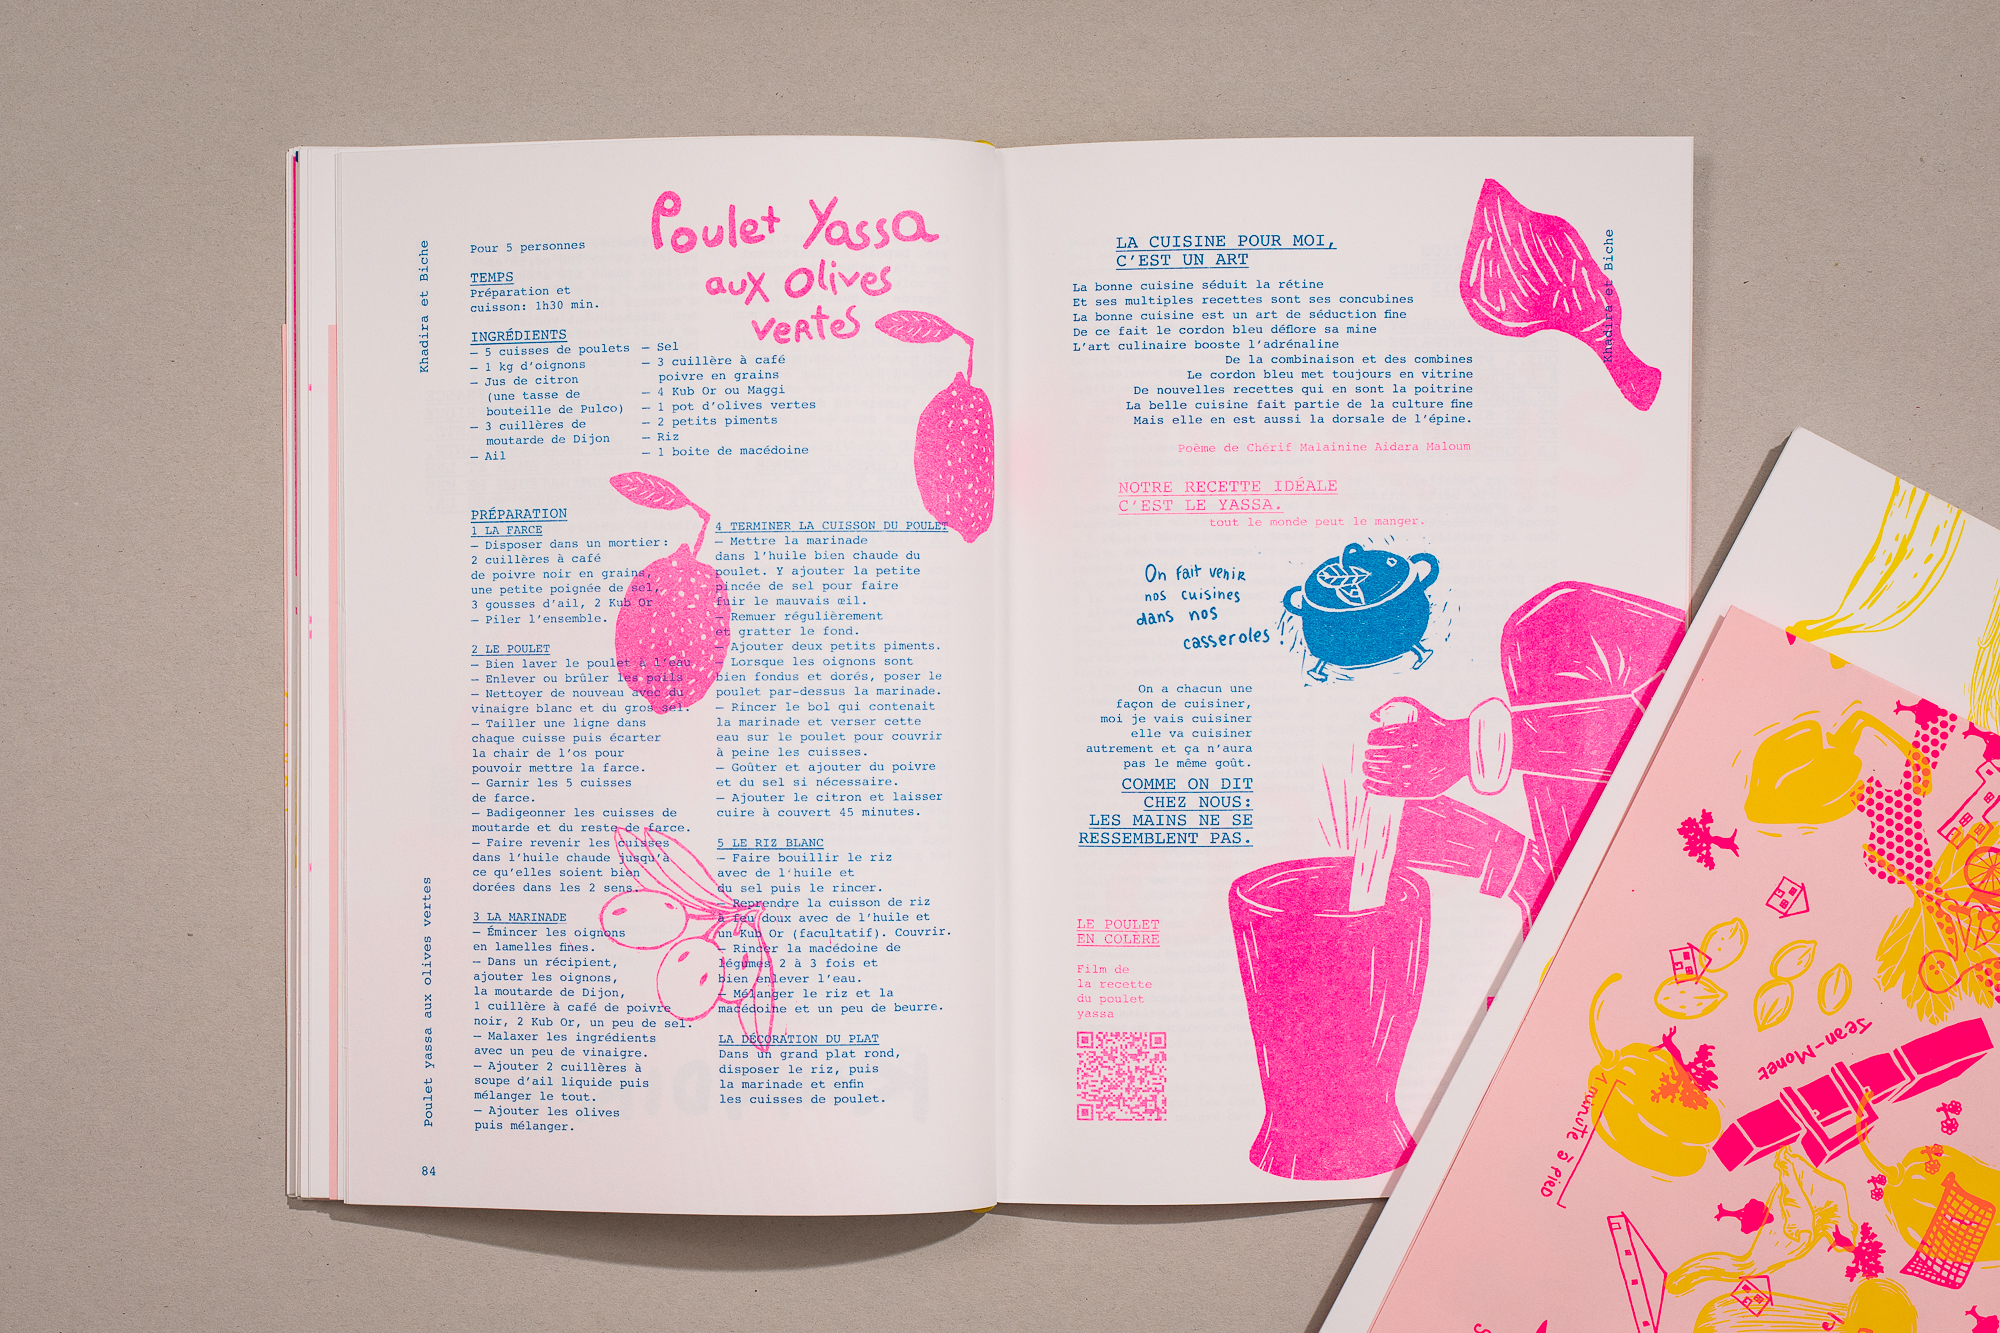 Khadira et Biche
Poulet yassa aux olives vertes
84
Poulet Yassa
aux olives
vertes
Pour 5 personnes
TEMPS
Préparation et
cuisson: 1h30 min.
INGRÉDIENTS
— 5 cuisses de poulets
— 1 kg d’oignons
— Jus de citron
(une tasse de
bouteille de Pulco)
— 3 cuillères de
moutarde de Dijon
— Ail
— Sel
— 3 cuillère à café
poivre en grains
— 4 Kub Or ou Maggi
— 1 pot d’olives vertes
— 2 petits piments
— Riz
— 1 boite de macédoine
PRÉPARATION
1 LA FARCE
— Disposer dans un mortier:
2 cuillères à café
de poivre noir en grains,
une petite poignée de sel,
3 gousses d’ail, 2 Kub Or
— Piler l’ensemble.
2 LE POULET
— Bien laver le poulet à l’eau
— Enlever ou brûler les poils
— Nettoyer de nouveau avec du
vinaigre blanc et du gros sel.
— Tailler une ligne dans
chaque cuisse puis écarter
la chair de l’os pour
pouvoir mettre la farce.
— Garnir les 5 cuisses
de farce.
— Badigeonner les cuisses de
moutarde et du reste de farce.
— Faire revenir les cuisses
dans l’huile chaude jusqu’à
ce qu’elles soient bien
dorées dans les 2 sens.
3 LA MARINADE
— Émincer les oignons
en lamelles fines.
— Dans un récipient,
ajouter les oignons,
la moutarde de Dijon,
1 cuillère à café de poivre
noir, 2 Kub Or, un peu de sel.
— Malaxer les ingrédients
avec un peu de vinaigre.
— Ajouter 2 cuillères à
soupe d’ail liquide puis
mélanger le tout.
— Ajouter les olives
puis mélanger.
4 TERMINER LA CUISSON DU POULET
— Mettre la marinade
dans l’huile bien chaude du
poulet. Y ajouter la petite
pincée de sel pour faire
fuir le mauvais œil.
— Remuer régulièrement
et gratter le fond.
— Ajouter deux petits piments.
— Lorsque les oignons sont
bien fondus et dorés, poser le
poulet par-dessus la marinade.
— Rincer le bol qui contenait
la marinade et verser cette
eau sur le poulet pour couvrir
à peine les cuisses.
— Goûter et ajouter du poivre
et du sel si nécessaire.
— Ajouter le citron et laisser
cuire à couvert 45 minutes.
5 LE RIZ BLANC
— Faire bouillir le riz
avec de l’huile et
du sel puis le rincer.
— Reprendre la cuisson de riz
à feu doux avec de l’huile et
un Kub Or (facultatif). Couvrir.
— Rincer la macédoine de
légumes 2 à 3 fois et
bien enlever l’eau.
— Mélanger le riz et la
macédoine et un peu de beurre.
LA DÉCORATION DU PLAT
Dans un grand plat rond,
disposer le riz, puis
la marinade et enfin
les cuisses de poulet.
LA CUISINE POUR MOI,
C’EST UN ART
La bonne cuisine séduit la rétine
Et ses multiples recettes sont ses concubines
La bonne cuisine est un art de séduction fine
De ce fait le cordon bleu déflore sa mine
L’art culinaire booste l’adrénaline
De la combinaison et des combines
Le cordon bleu met toujours en vitrine
De nouvelles recettes qui en sont la poitrine
La belle cuisine fait partie de la culture fine
Mais elle en est aussi la dorsale de l’épine.
Poème de Chérif Malainine Aidara Maloum
NOTRE RECETTE IDÉALE
C’EST LE YASSA.
tout le monde peut le manger.
On fait venir
nos cuisines
dans nos
casseroles !
On a chacun une
façon de cuisiner,
moi je vais cuisiner
elle va cuisiner
autrement et ça n’aura
pas le même goût.
COMME ON DIT
CHEZ NOUS:
LES MAINS NE SE
RESSEMBLENT PAS.
LE POULET
EN COLÈRE
Film de
la recette
du poulet
yassa
Khadira et Biche
Jean-Monnet
1 minute à pied